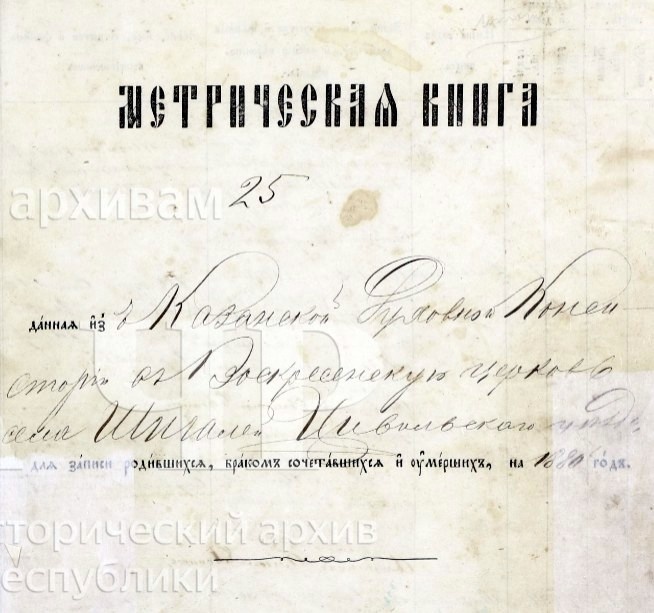 МЕТРИЧЕСКАЯ КНИГА
архивам
25
да́нная и҆зъ Казанской Духовной Конси-
сторіи въ Воскресенскую церковь
села Шигалей Цивильскаго уѣзда,
для за́писи роди́вшихся, бра́комъ сочета́вшихся и҆ ᲂу҆ме́ршихъ, на 1880 го́дъ.
ЦР
сторический архив
еспублики